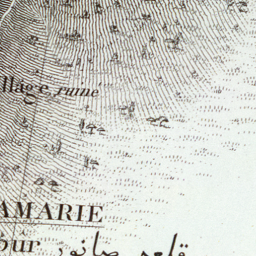 llage ruiné
AMARIE
our قلعه صانور